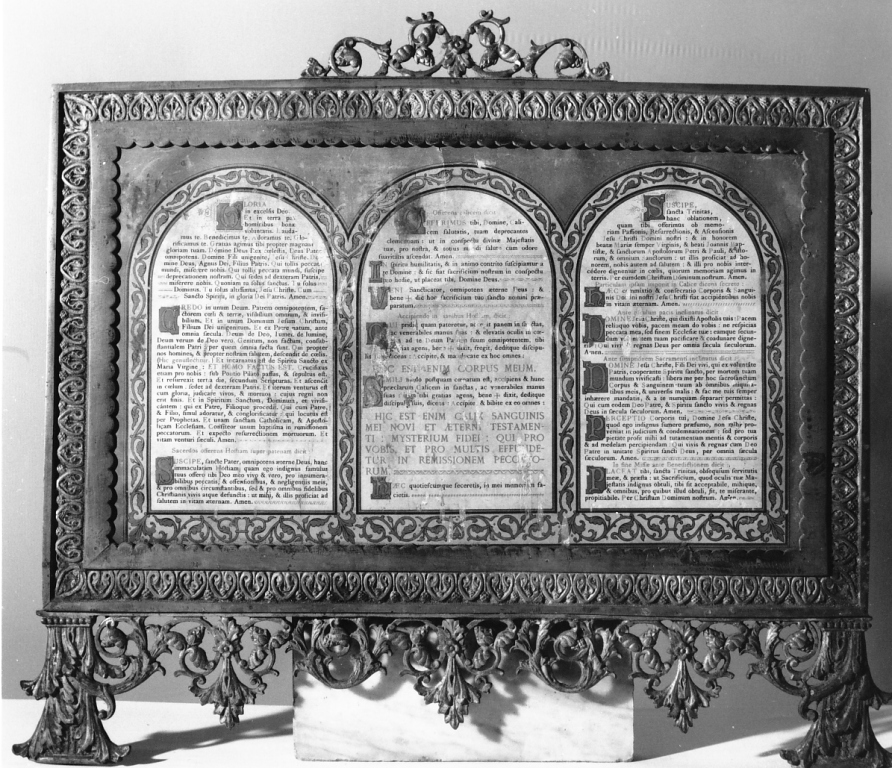 GLORIA
in excelsis Deo.
Et in terra pax
hominibus bonæ
voluntatis. Lauda-
mus te. Benedicimus te. Adoramus te. Glo-
rificamus te. Gratias agimus tibi propter magnam
gloriam tuam. Domine Deus Rex cœlestis, Deus Pater
omnipotens. Domine Fili unigenite, Jesu Christe. Do-
mine Deus, Agnus Dei, Filius Patris. Qui tollis peccata
mundi, miserere nobis. Qui tollis peccata mundi, suscipe
deprecationem nostram. Qui sedes ad dexteram Patris,
miserere nobis. Quoniam tu solus sanctus. Tu solus
Dominus. Tu solus altissimus, Jesu Christe. Cum
Sancto Spiritu, in gloria Dei Patris. Amen.
CREDO in unum Deum, Patrem omnipotentem,
factorem cœli & terræ, visibilium omnium, & invisi-
bilium. Et in unum Dominum Jesum Christum,
Filium Dei unigenitum. Et ex Patre natum, ante
omnia sæcula. Deum de Deo, lumen de lumine,
Deum verum de Deo vero. Genitum, non factum, consub-
stantialem Patri: per quem omnia facta sunt. Qui propter
nos homines, & propter nostram salutem, descendit de cœlis.
Hic genuflectitur. Et incarnatus est de Spiritu Sancto ex
Maria Virgine: ET HOMO FACTUS EST. Crucifixus
etiam pro nobis: sub Pontio Pilato passus, & sepultus est.
Et resurrexit tertia die, secundum Scripturas. Et ascendit
in cœlum: sedet ad dexteram Patris. Et iterum venturus est
cum gloria, judicare vivos, & mortuos: cujus regni non
erit finis. Et in Spiritum Sanctum, Dominum, & vivifi-
cantem: qui ex Patre, Filioque procedit. Qui cum Patre,
& Filio, simul adoratur, & conglorificatur: qui locutus est
per Prophetas. Et unam sanctam Catholicam, & Aposto-
licam Ecclesiam. Confiteor unum baptisma in remissionem
peccatorum. Et expecto resurrectionem mortuorum. Et
vitam venturi sæculi. Amen.
Sacerdos offerens Hostiam super patenam dicit:
SUSCIPE, sancte Pater, omnipotens æterne Deus, hanc
immaculatam Hostiam, quam ego indignus famulus
tuus offero tibi Deo meo vivo & vero, pro innumera-
bilibus peccatis, & offensionibus, & negligentiis meis,
& pro omnibus circumstantibus, sed & pro omnibus fidelibus
Christianis vivis atque defunctis: ut mihi, & illis proficiat ad
salutem in vitam æternam. Amen.
Offerens calicem dicit:
OFFERIMUS tibi, Domine, cali-
cem salutaris, tuam deprecantes
clementiam: ut in conspectu divinæ Majestatis
tuæ, pro nostra, & totius mundi salute, cum odore
suavitatis ascendat. Amen.
IN spiritu humilitatis, & in animo contrito suscipiamur a
te Domine: & sic fiat sacrificium nostrum in conspectu
tuo hodie, ut placeat tibi, Domine Deus.
VENI Sanctificator, omnipotens æterne Deus: &
bene ✠ dic hoc sacrificium tuo sancto nomini præ-
paratum.
Accipiendo in manibus Hostiam, dicit:
QUI pridie quam pateretur, accepit panem in sanctas,
ac venerabiles manus suas: & elevatis oculis in cœ-
lum ad te Deum Patrem suum omnipotentem, tibi
gratias agens, bene ✠ dixit, fregit, deditque discipu-
lis suis, dicens: Accipite, & manducate ex hoc omnes:
HOC EST ENIM CORPUS MEUM.
SIMILI modo postquam cœnatum est, accipiens & hunc
præclarum Calicem in sanctas, ac venerabiles manus
suas: item tibi gratias agens, bene ✠ dixit, deditque
discipulis suis, dicens: Accipite, & bibite ex eo omnes:
HIC EST ENIM CALIX SANGUINIS
MEI NOVI ET ÆTERNI TESTAMEN-
TI: MYSTERIUM FIDEI: QUI PRO
VOBIS, ET PRO MULTIS EFFUNDE-
TUR IN REMISSIONEM PECCATO-
RUM.
HÆC quotiescumque feceritis, in mei memoriam fa-
cietis.
SUSCIPE,
sancta Trinitas,
hanc oblationem,
quam tibi offerimus ob memo-
riam Passionis, Resurrectionis, & Ascensionis
Jesu Christi Domini nostri: & in honorem
beatæ Mariæ semper Virginis, & beati Joannis Bap-
tistæ, & sanctorum Apostolorum Petri & Pauli, & isto-
rum, & omnium sanctorum: ut illis proficiat ad ho-
norem, nobis autem ad salutem: & illi pro nobis inter-
cedere dignentur in cœlis, quorum memoriam agimus in
terris. Per eumdem Christum Dominum nostrum. Amen.
HÆC commixtio & consecratio Corporis & Sangui-
nis Domini nostri Jesu Christi fiat accipientibus nobis
in vitam æternam. Amen.
DOMINE Jesu Christe, qui dixisti Apostolis tuis: Pacem
relinquo vobis, pacem meam do vobis: ne respicias
peccata mea, sed fidem Ecclesiæ tuæ: eamque secun-
dum voluntatem tuam pacificare & coadunare digne-
ris. Qui vivis & regnas Deus per omnia sæcula sæculorum.
Amen.
DOMINE Jesu Christe, Fili Dei vivi, qui ex voluntate
Patris, cooperante Spiritu sancto, per mortem tuam
mundum vivificasti: libera me per hoc sacrosanctum
Corpus & Sanguinem tuum ab omnibus iniqui-
tatibus meis, & universis malis: & fac me tuis semper
inhærere mandatis, & a te numquam separari permittas:
Qui cum eodem Deo Patre, & Spiritu sancto vivis & regnas
Deus in sæcula sæculorum. Amen.
PERCEPTIO Corporis tui, Domine Jesu Christe,
quod ego indignus sumere præsumo, non mihi pro-
veniat in judicium & condemnationem: sed pro tua
pietate prosit mihi ad tutamentum mentis & corporis
& ad medelam percipiendam: Qui vivis & regnas cum Deo
Patre in unitate Spiritus sancti Deus, per omnia sæcula
sæculorum. Amen.
In fine Missæ ante Benedictionem dicit:
PLACEAT tibi, sancta Trinitas, obsequium servitutis
meæ, & præsta: ut Sacrificium, quod oculis tuæ Ma-
jestatis indignus obtuli, tibi sit acceptabile, mihique,
& omnibus, pro quibus illud obtuli, sit, te miserante,
propitiabile. Per Christum Dominum nostrum. Amen.